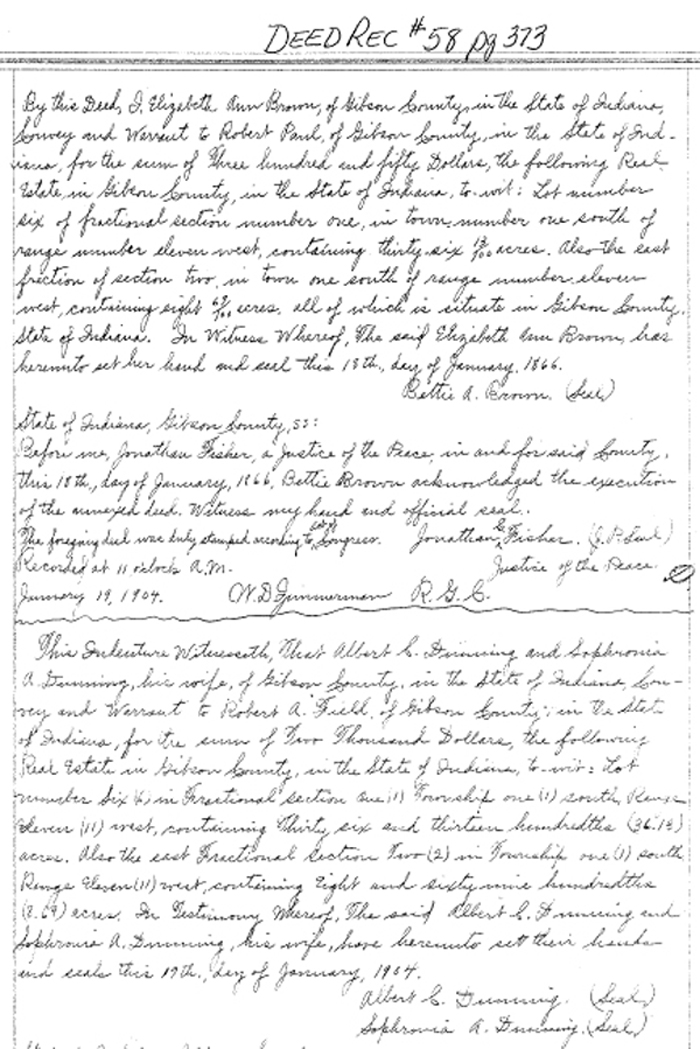 DEED REC #58 pg 373
By this Deed, I, Elizabeth Ann Brown, of Gibson County, in the State of Indiana,
Convey and Warrant to Robert Paul, of Gibson County, in the State of Ind-
iana, for the sum of Three hundred and fifty Dollars, the following Real
Estate, in Gibson County, in the State of Indiana, to-wit: Lot number
six of fractional section number one, in town number one south of
range number eleven west, containing thirty-six 13/100 acres. Also the east
fraction of section two, in town one south of range number eleven
west, containing eight /100 acres, all of which is situate in Gibson County,
State of Indiana. In Witness Whereof, The said Elizabeth Ann Brown, has
hereunto set her hand and seal this 18th., day of January, 1866.
Bettie A. Brown. (Seal)
State of Indiana, Gibson County, ss:
Before me, Jonathan Fisher, a Justice of the Peace, in and for said County,
this 18th., day of January, 1866, Bettie Brown acknowledged the execution
of the annexed deed. Witness my hand and official seal.
The foregoing deed was duly stamped according to act of Congress. Jonathan Fisher. (J.P. Seal)
Recorded at 11 o'clock A.M. Justice of the Peace.
January 19, 1904. W.D. Zimmerman R.G.C.
This Indenture Witnesseth, That Albert C. Dunning and Sophronia
A. Dunning, his wife, of Gibson County, in the State of Indiana, Con-
vey and Warrant to Robert A. Field, of Gibson County, in the State
of Indiana, for the sum of Two Thousand Dollars, the following
Real Estate in Gibson County, in the State of Indiana, to-wit: Lot
number Six (6) in Fractional section one (1) Township one (1) south, Range
Eleven (11) west, containing Thirty six and thirteen hundredths (36.13)
acres. Also the east Fractional Section Two (2) in Township one (1) south
Range Eleven (11) west, containing Eight and sixty nine hundredths
(8.69) acres. In Testimony Whereof, The said Albert C. Dunning and
Sophronia A. Dunning, his wife, have hereunto set their hands
and seals this 19th., day of January, 1904.
Albert C. Dunning. (Seal)
Sophronia A. Dunning. (Seal)